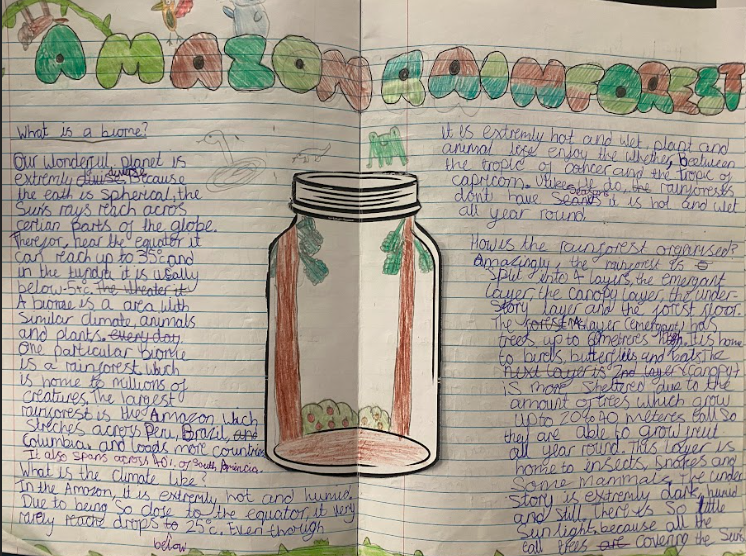 AMAZON RAINFOREST
What is a biome?
Our wonderful planet is
extremly diverse. Because
the eath is spherical, the
Suns rays reach acros
certian parts of the globe.
Therefor, near the equator it
can reach up to 35°c and
in the tundra it is usally
below -5°c. The wheater it
A biome is a area with
Similar climate, animals
and plants. every day
One particular biome
is a rainforest which
is home to millions of
creatures. The largest
rainforest is the Amazon which
streches across Peru, Brazil, and
Columbia and loads more countries
It also spans across 40% of South America.
What is the climate like?
In the Amazon, it is extremly hot and humid.
Due to being so close to the equator, it very
rarely reache drops to 25°c. Even thorugh
below
it is extremly hot and wet, plant and
animal life enjoy the whether. Between
the tropic of cancer and the tropic of
capricorn. we do, the rainforests
dont have Seasons it is hot and wet
all year round.
How is the rainforest organised?
Amazingly, the rainforest is
Split into 4 layers, the emergant
Layer, the canopy layer, the under-
Story layer and the forist floor.
The forest layer (emergant) has
trees up to metres high. It is home
to birds, butterflies and bats. The
next layer is 2nd layer (canopy)
is more Sheltered due to the
amount of trees which grow
up to 20% 40 meteres tall So
they are able to grow fruit
all year round. This layer is
home to insects, Snakes and
Some mammals. The under
Story is extremly dark, humid
and still. There is So little
Sun light, because all the
tall trees are covering the Sun